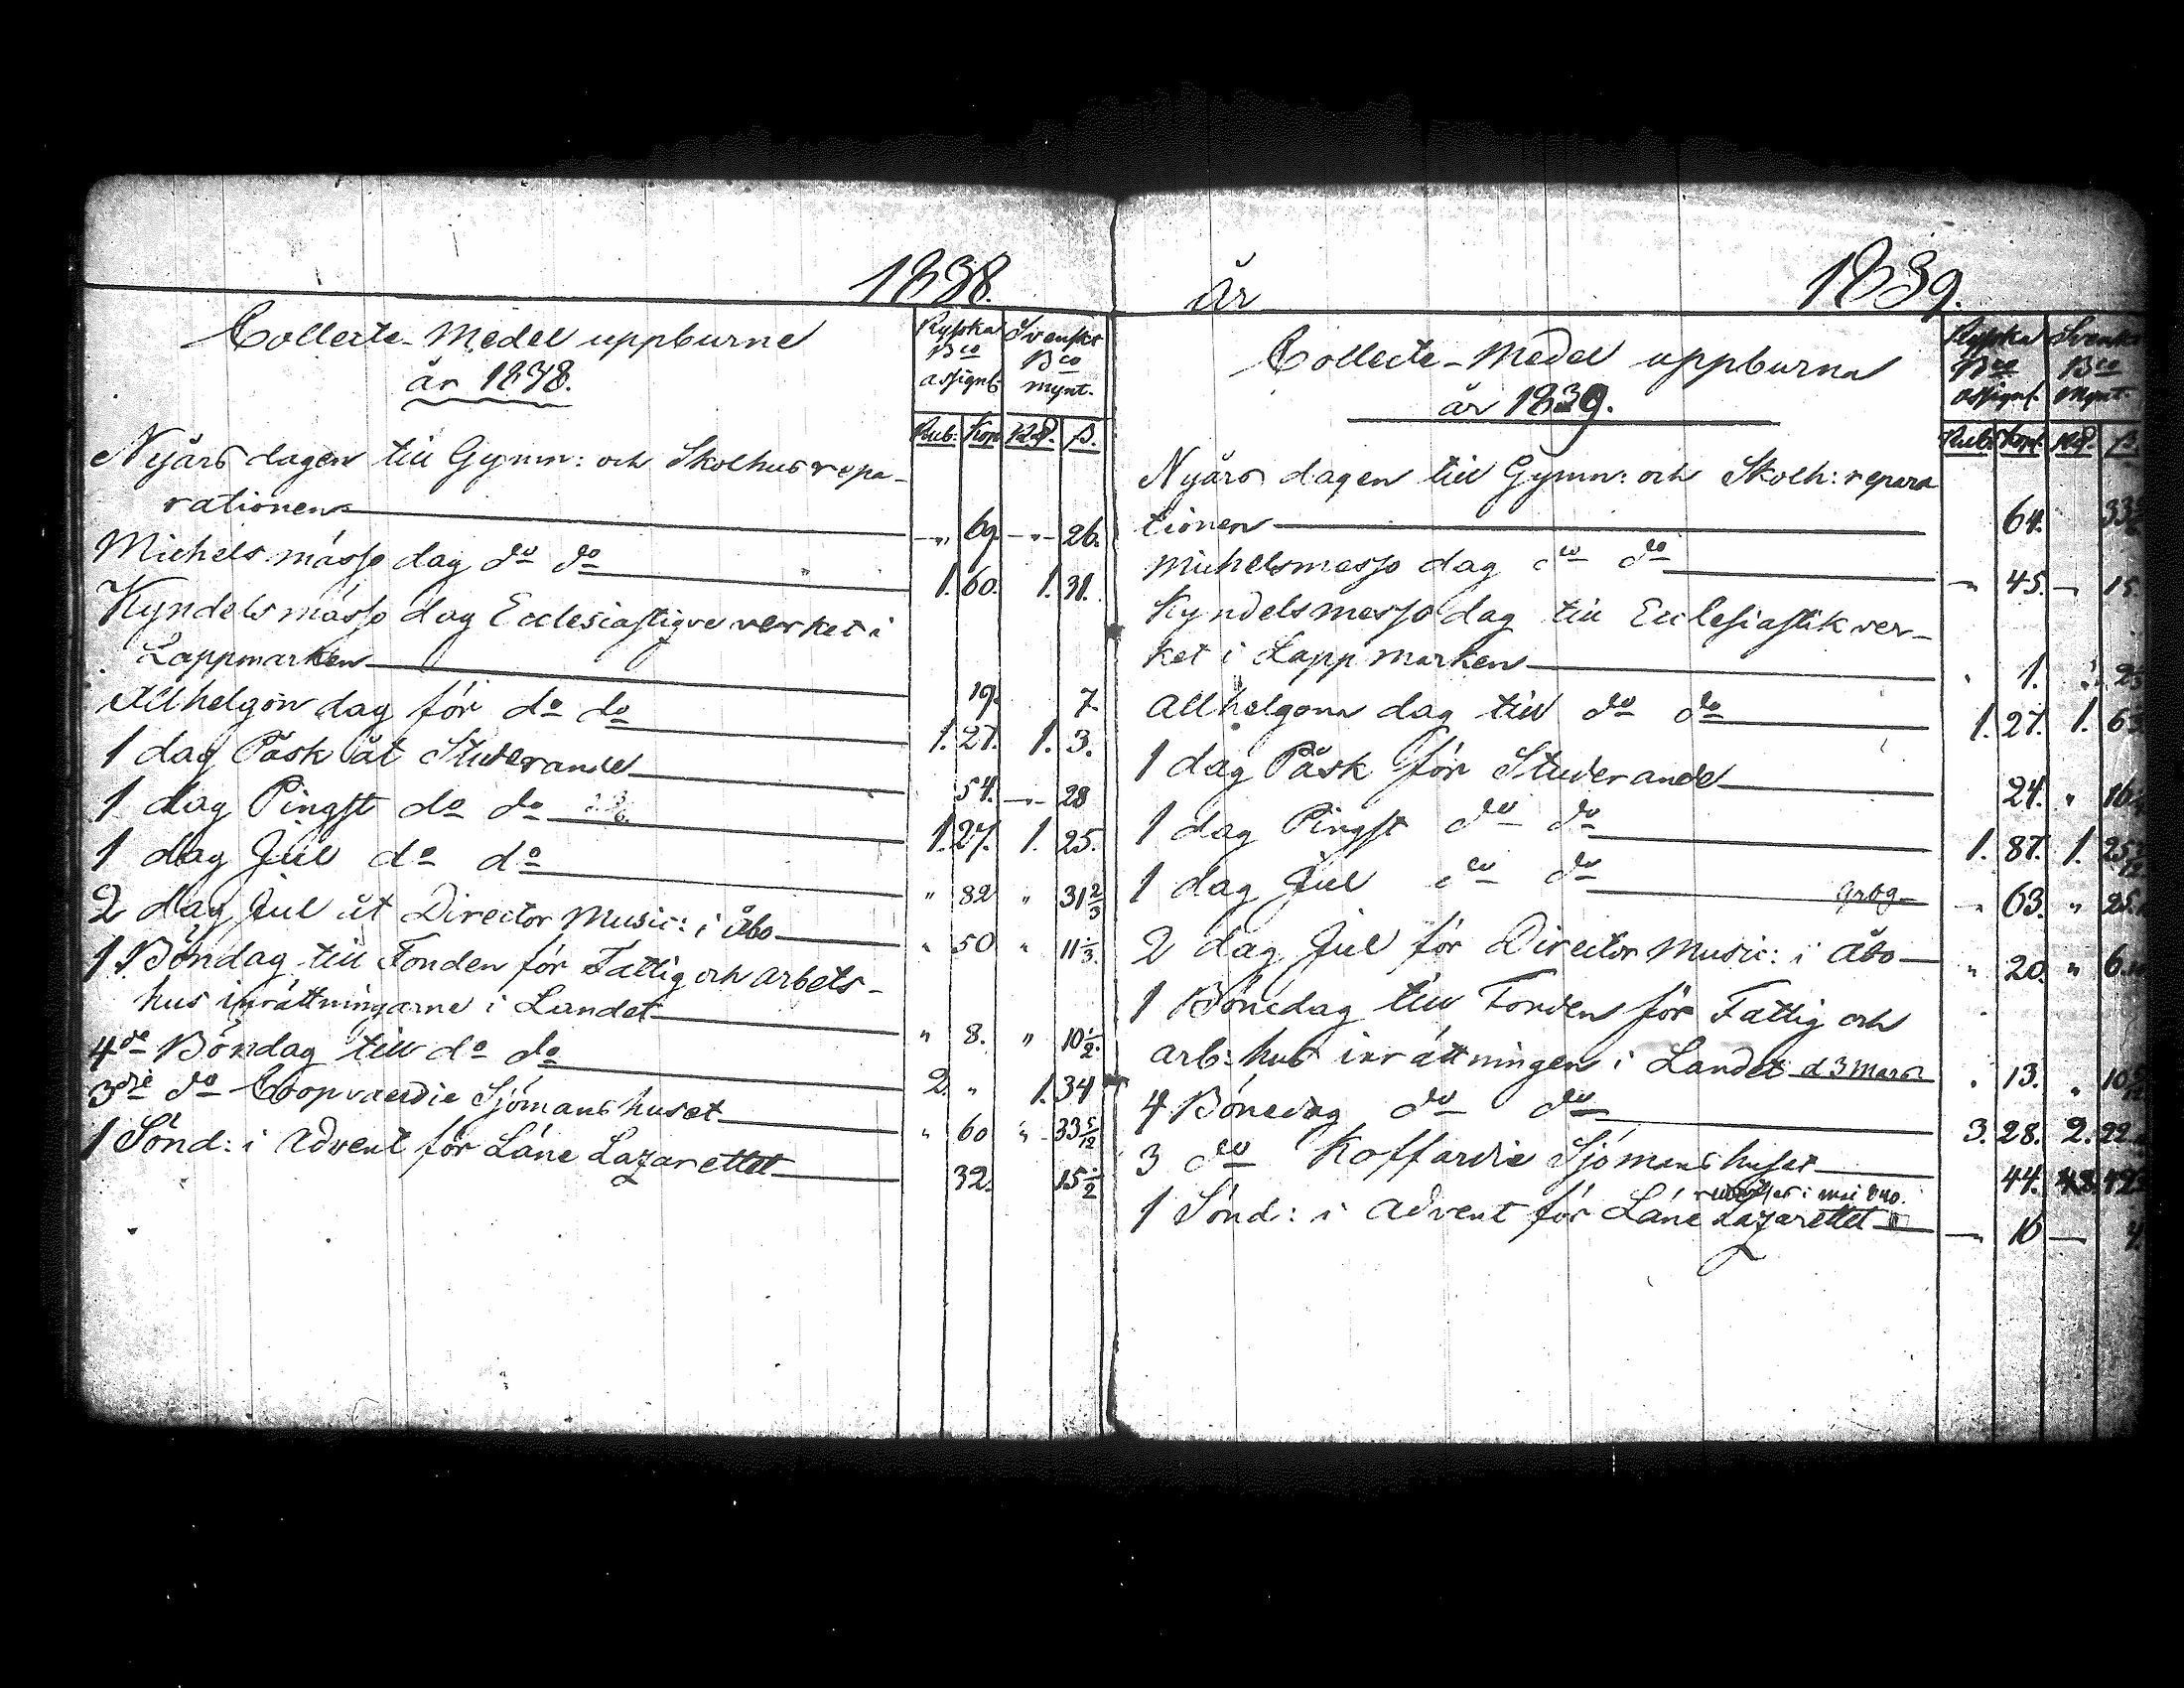 1838.
Collecte-Medel uppburne
år 1838.
Ryska Svenska
Bco Bco
assignt. mynt.
Rub. Kop. Rd. ß.
Nyårs dagen till Gymn: och Skolhus repa-
rationen — „ 69. — „ — 26.
Michels mässo dag do do 1. 60. 1. 31.
Kyndels mässo dag Ecclesiastique verket i
Lappmarken 19. 7.
Allhelgon dag för do do 1. 27. 1. 3.
1 dag Påsk åt Studerande 54. — 28
1 dag Pingst do do 1. 27. 1. 25.
1 dag Jul do do " 82 " 31 2/3
2 dag Jul åt Director Music: i Åbo " 50 " 11 1/3.
1. Böndag till Fonden för Fattig och arbets-
hus inrättningarne i Landet " 8. " 10 1/2.
4de Böndag till do do 2. " 1. 34
3dje do Coopvaerdie Sjömans huset " 60 " 33 5/12
1 Sönd: i Advent för Läne Lazarettet 32. 15 1/2
år 1839.
Collecte-Medel uppburna
år 1839.
Ryska Svenska
Bco Bco
assignt. Mynt.
Rub. Kop. Rd. ß.
Nyårs dagen till Gymn: och Skolh: repara
tionen 64. 33
Michelsmesso dag do do — 45. — 15
Kyndelsmesso dag till Ecclesiastik ver-
ket i Lappmarken 1.
Allhelgona dag till do do 1. 27. 1. 6
1 dag Påsk för Studerande 24. " 16
1 dag Pingst do do 1. 87. 1. 25
1 dag Jul do do — 63. " 25
2 dag Jul för Director Music: i Åbo " 20. " 6
1 Bönedag till Fonden för Fattig och
arb: hus inrättningen i Landet d 3 Mars . 13. " 10
4 Bönedag do do 3. 28. 2. 22
3 do Koffardie Sjömans huset 44.
i maj 840.
1 Sönd: i Advent för Läne Lazarettet — 16 — 4